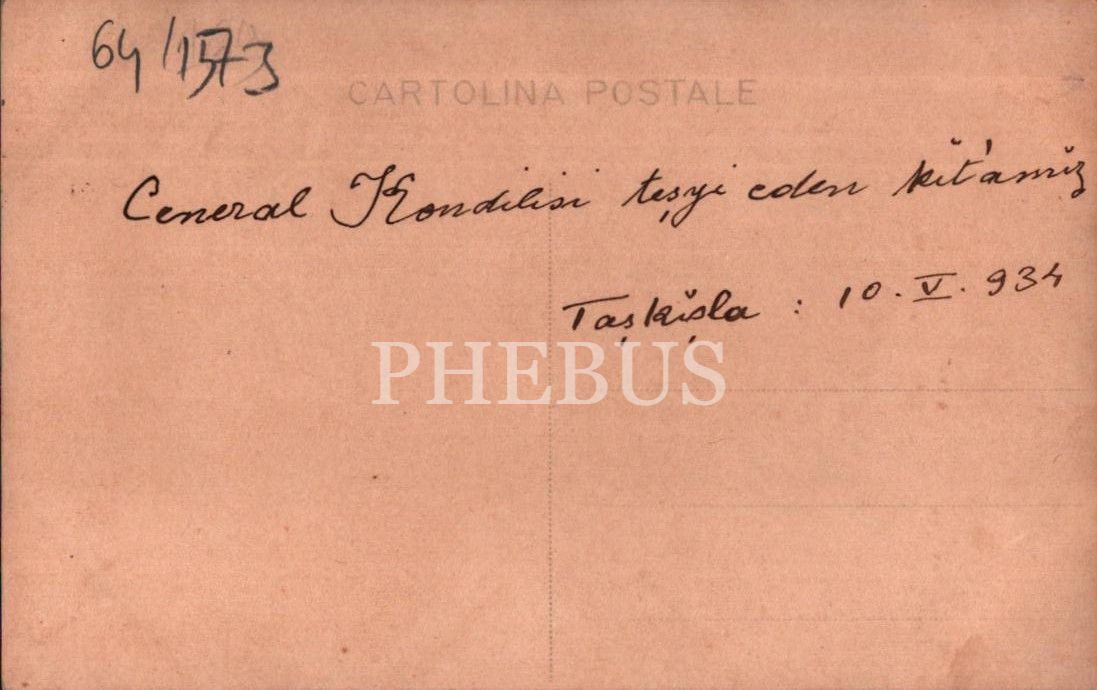 64/1573
CARTOLINA POSTALE
Ceneral Kondilisi teşyi eden kĭt'amĭz
Taşkĭşla : 10. V. 934
PHEBUS